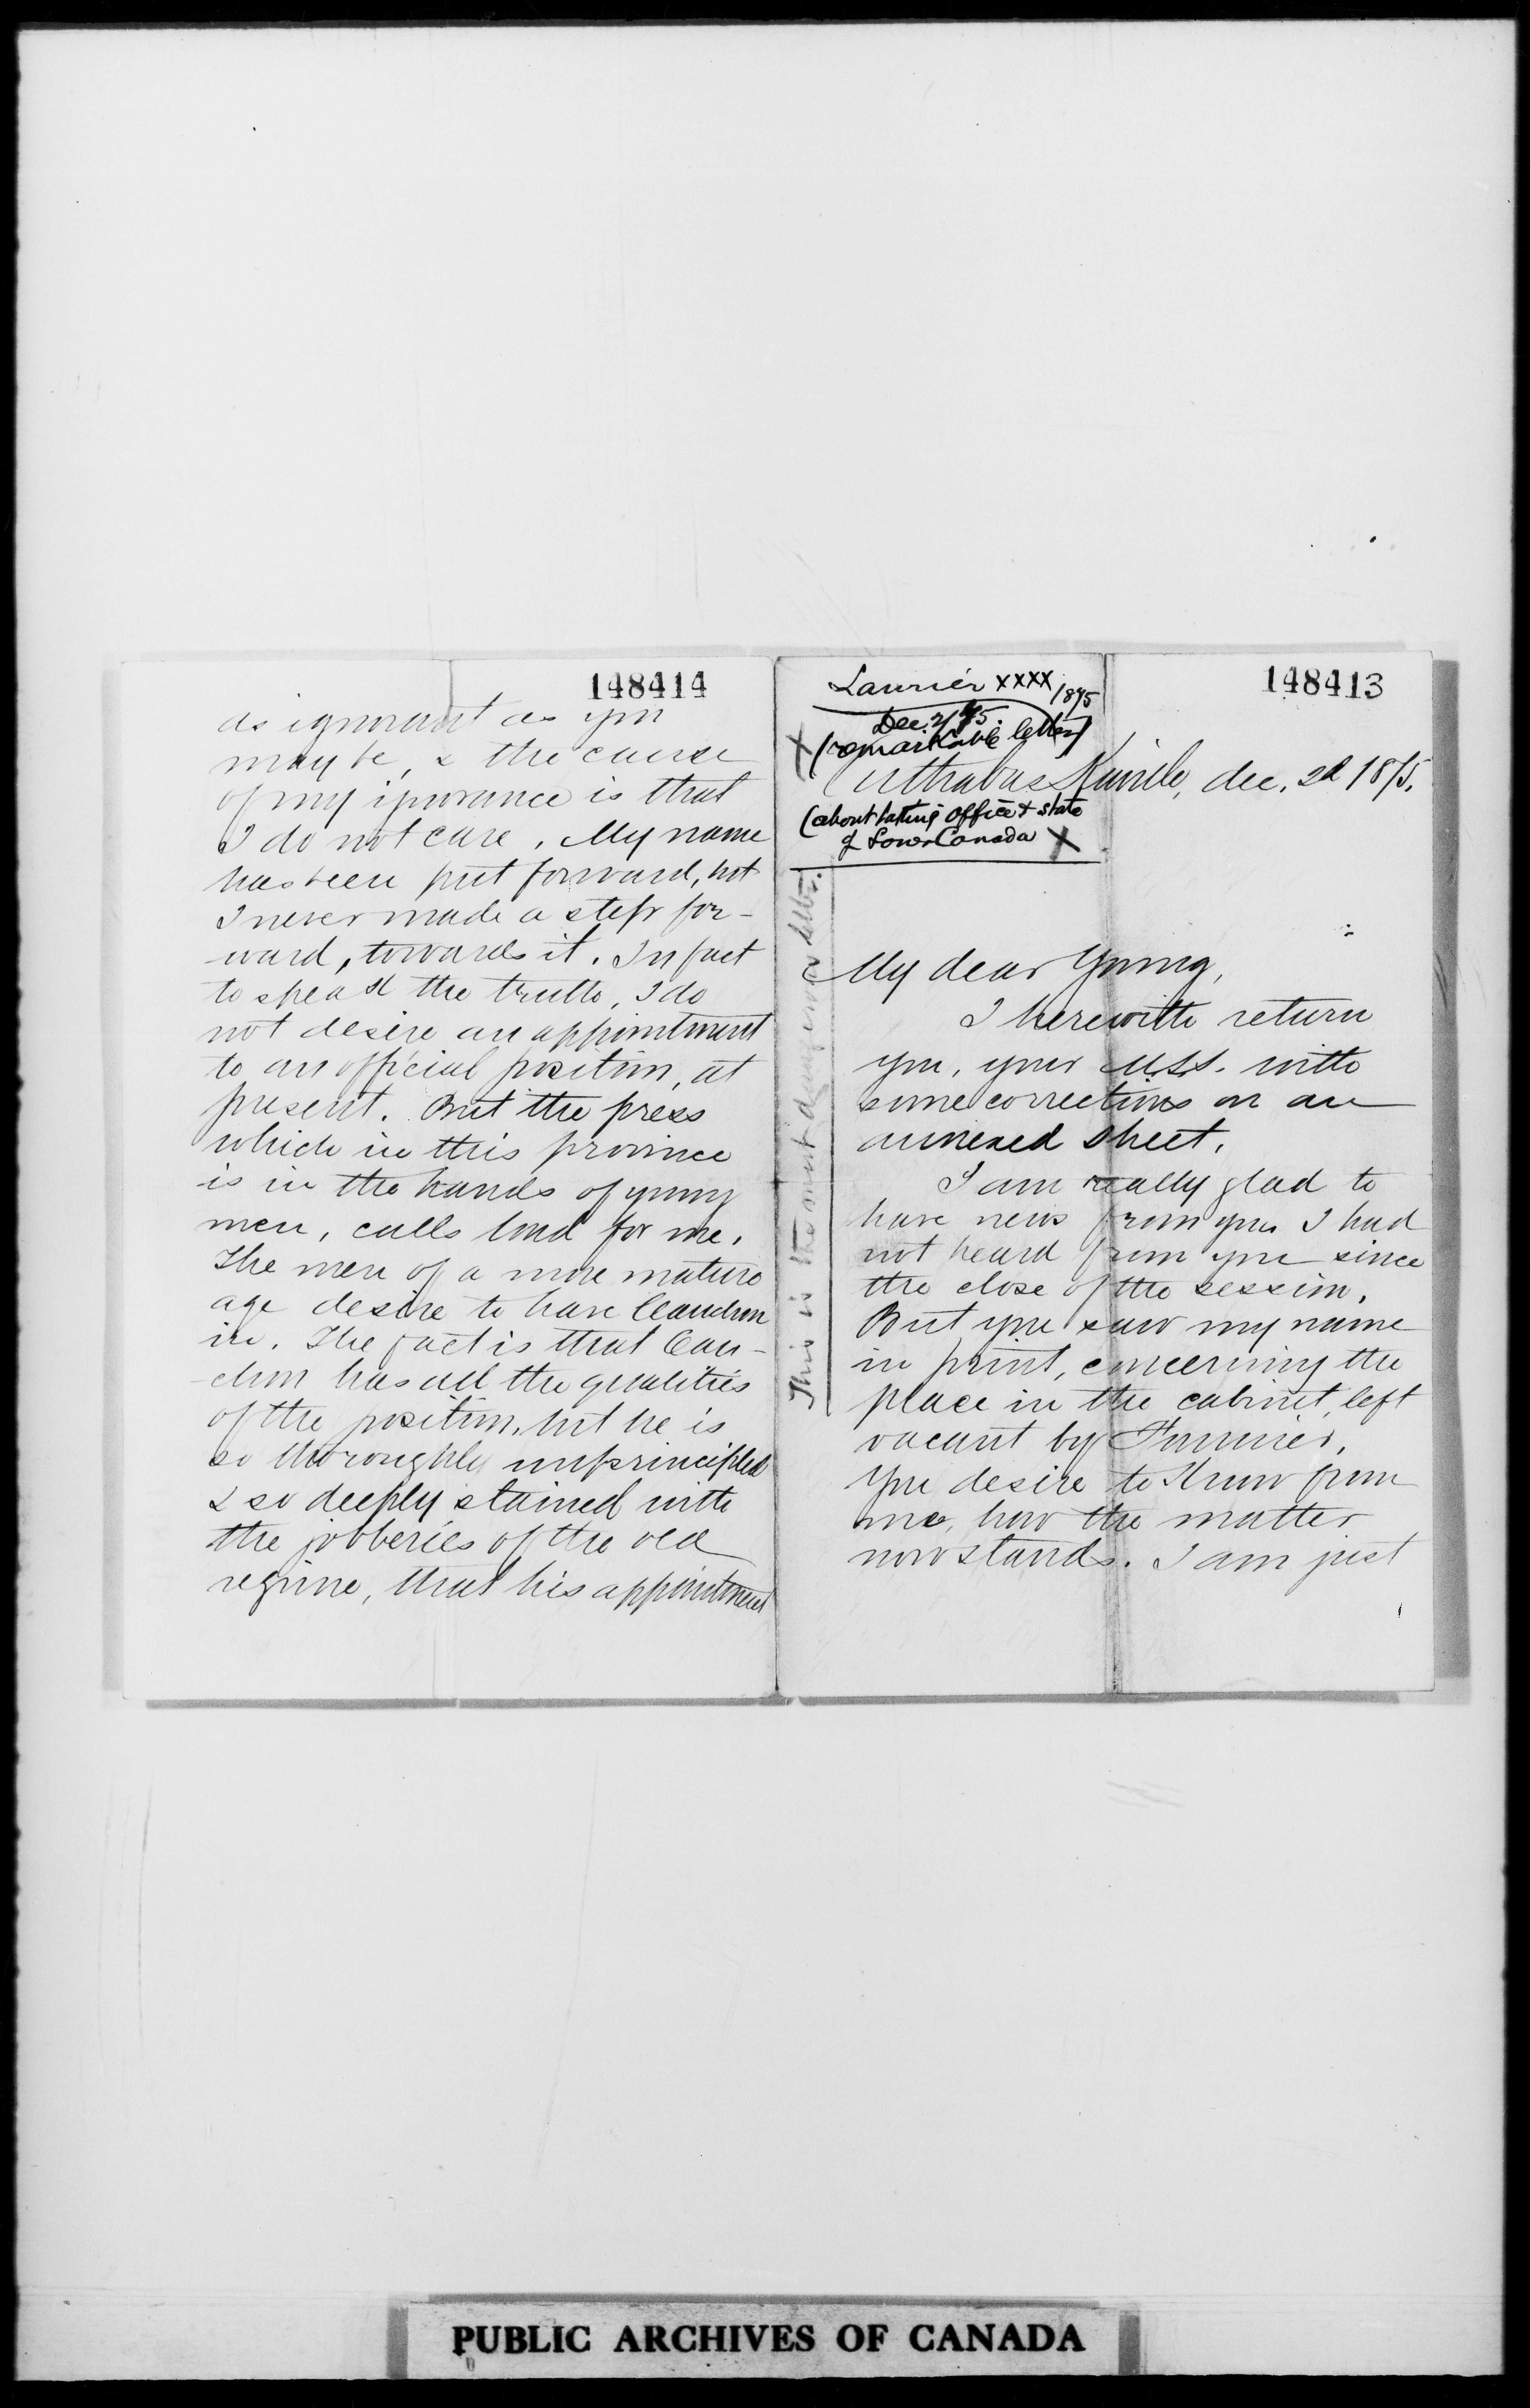 148413
Laurier xxxx 1875
Dec 2/75.
(remarkable letter)
(about taking office & state
of Lower Canada
Arthabaskaville, dec. 2d 1875.
My dear Young,
I herewith return
you, your MSS. with
some corrections on an
annexed sheet.
I am really glad to
have news from you. I had
not heard from you since
the close of the session.
But you saw my name
in print, concerning the
place in the cabinet, left
vacant by Fournier.
You desire to know from
me, how the matter
now stands. I am just
This is the most dangerous letter.
148414
as ignorant as you
may be, & the cause
of my ignorance is that
I do not care. My name
has been put forward, but
I never made a step for-
ward, towards it. In fact
to speak the truth, I do
not desire an appointment
to an official position, at
present. But the press
which in this province
is in the hands of young
men, calls loud for me.
The men of a more mature
age desire to have Cauchon
in. The fact is that Cau-
-chon has all the qualities
of the position, but he is
so thoroughly unprincipled
& so deeply stained with
the jobberies of the old
regime, that his appointment
PUBLIC ARCHIVES OF CANADA